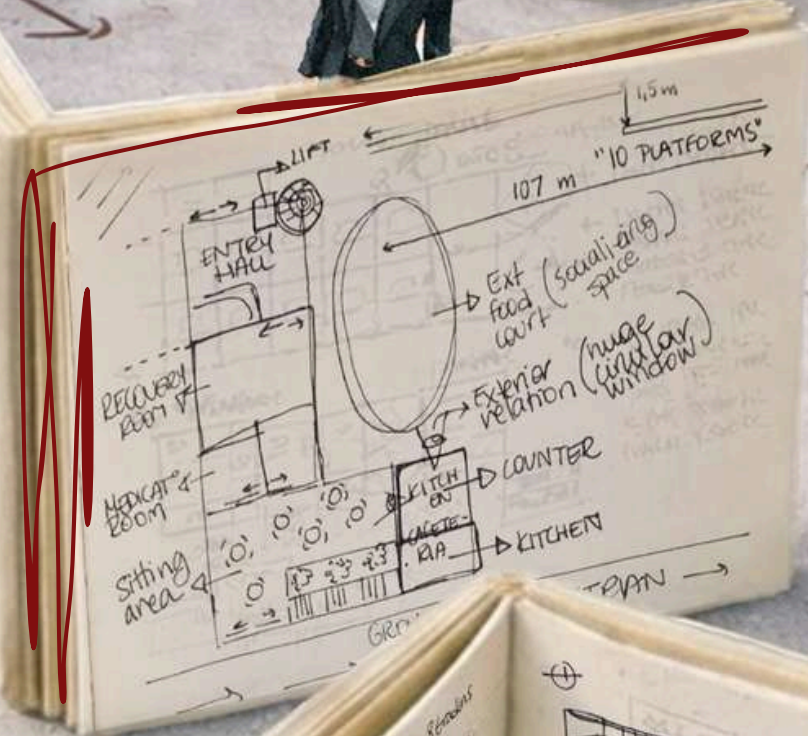 1,5 m
"10 PLATFORMS"
107 m
LIFT
ENTRY
HALL
Ext
food
court
(socializing)
space
Exterior
relation
(huge
circular
window)
RECOVERY
ROOM
MEDICAT°
ROOM
KITCH
EN
COUNTER
CAFETE-
RIA
KITCHEN
Sitting
area